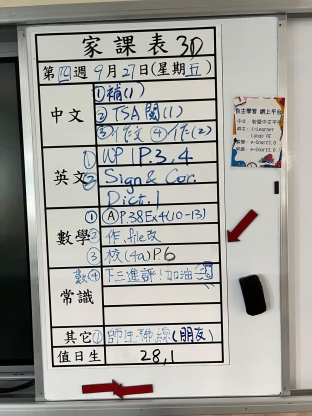 家課表 3D
第四週 9月27日(星期五)
中文
①補(1)
②TSA閱(1)
③作文 ④作(2)
英文
① WP 1 P.3,4
② Sign & Cor.
Dict. 1
數學
① Ⓐ P.38 Ex4(10-13)
② 作, file改
③ 校(4a)P6
數④ 下三進評!加油
常識
其它 ①
(朋友)
值日生 28,1
自主學習 網上平台
中文:
英文: i-Learner
數學: e-Smart2.0
常識: e-Smart2.0